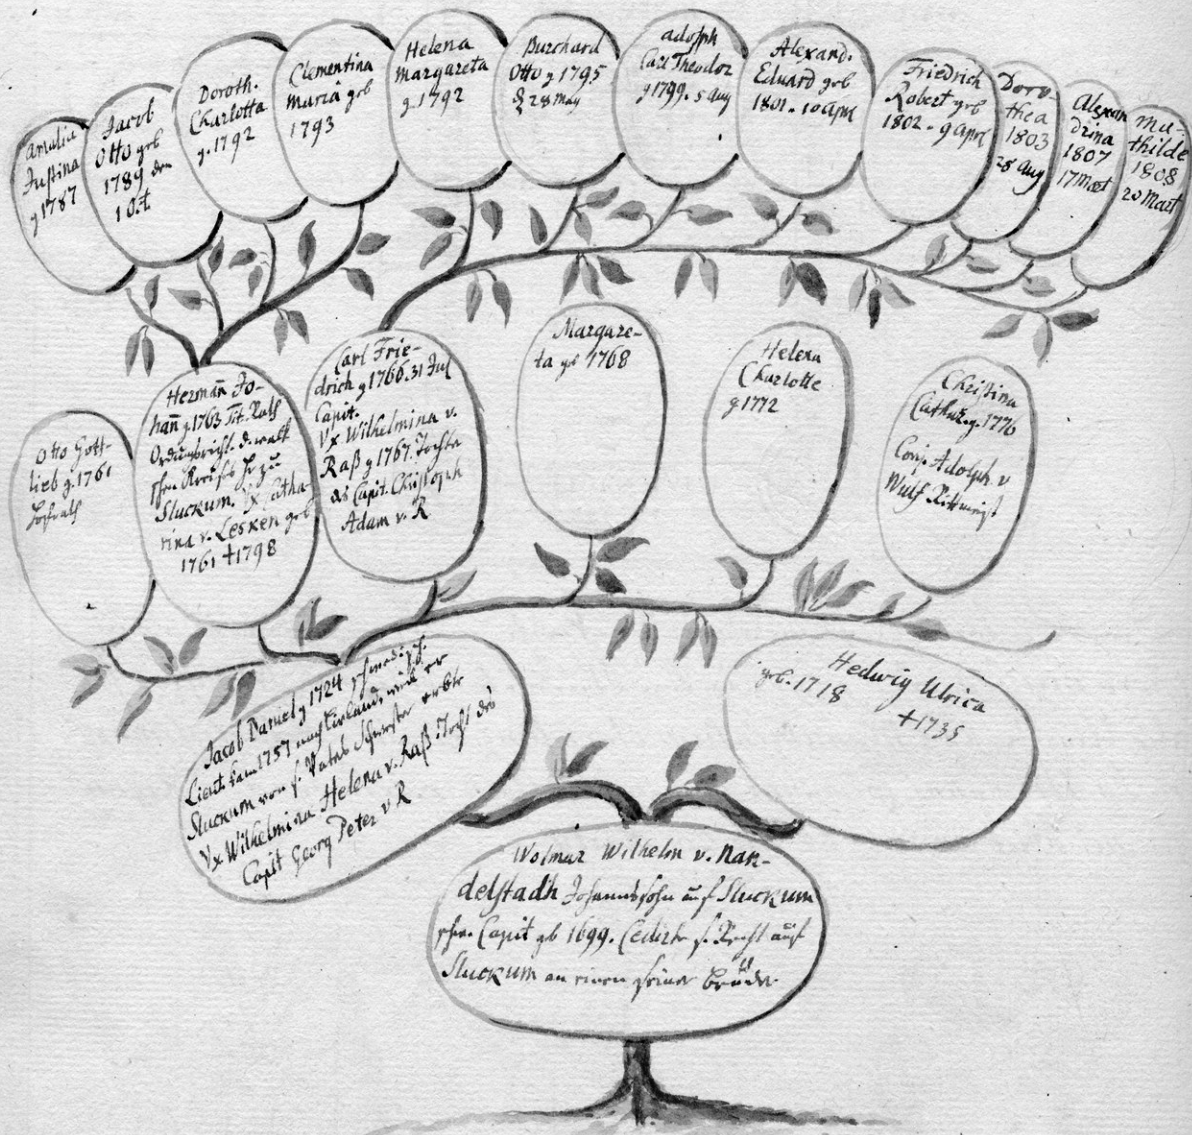 Amalia
Justina
g 1787
Jacob
Otto geb
1789 den
1 Oct
Doroth.
Charlotta
g. 1792
Clementina
Maria geb
1793
Helena
Margareta
g. 1792
Burchard
Otto g 1795
d 28 May
Adolph
Carl Theodor
g 1799. 5 Aug
Alexand.
Eduard geb
1801. 10 Apr
Friedrich
Robert geb
1802. 9 April
Doro-
thea
1803
28 Aug
Alexan
drina
1807
17 Mart
Ma-
thilde
1808
20 Mart
Otto Gott-
lieb g. 1761
Hofrath
Hermañ Jo-
hañ g. 1763 Tit. Rath
Ordnungsricht. d.
schen Kreises zu
Sluckum. Vx Catha-
rina v. Lesken geb
1761 †1798
Carl Frie-
drich g 1766. 31 Jul
Capit.
Vx Wilhelmina v.
Raß g 1767. Tochter
des Capit. Christoph
Adam v. R
Margare-
ta geb 1768
Helena
Charlotte
g 1772
Christina
Cathar. g. 1776
Conj. Adolph v
Wulf Rittmeist
Jacob Daniel g 1724 schwedisch.
Lieut. kam 1757 nach Livland wird er
Sluckum von s. Vaters Schwester erbte
Vx Wilhelmina Helena v. Raß Tocht des
Capit Georg Peter v R
Hedwig Ulrica
geb. 1718 †1735
Wolmar Wilhelm v. Nan-
delstadh Johannssohn auf Sluckum
schw. Capit geb 1699. Cedirte s. Recht auf
Sluckum an einen seiner Brüder